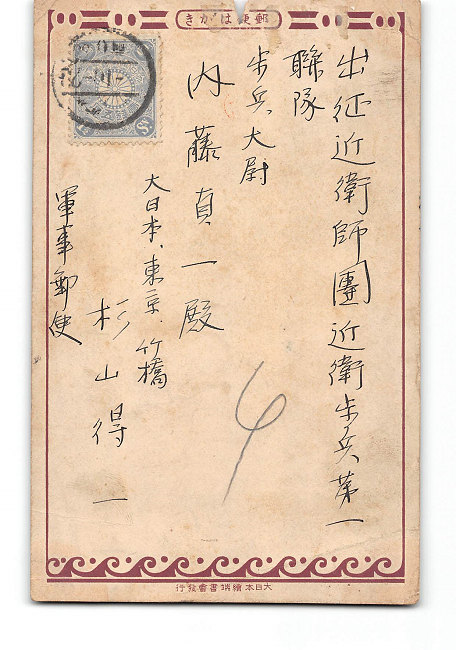 郵便はがき
出征近衛師團近衛歩兵第一
聯隊
歩兵大尉
内藤貞一殿
大日本、東京、竹橋
杉山得一
軍事郵便
4
大日本繪端書會發行